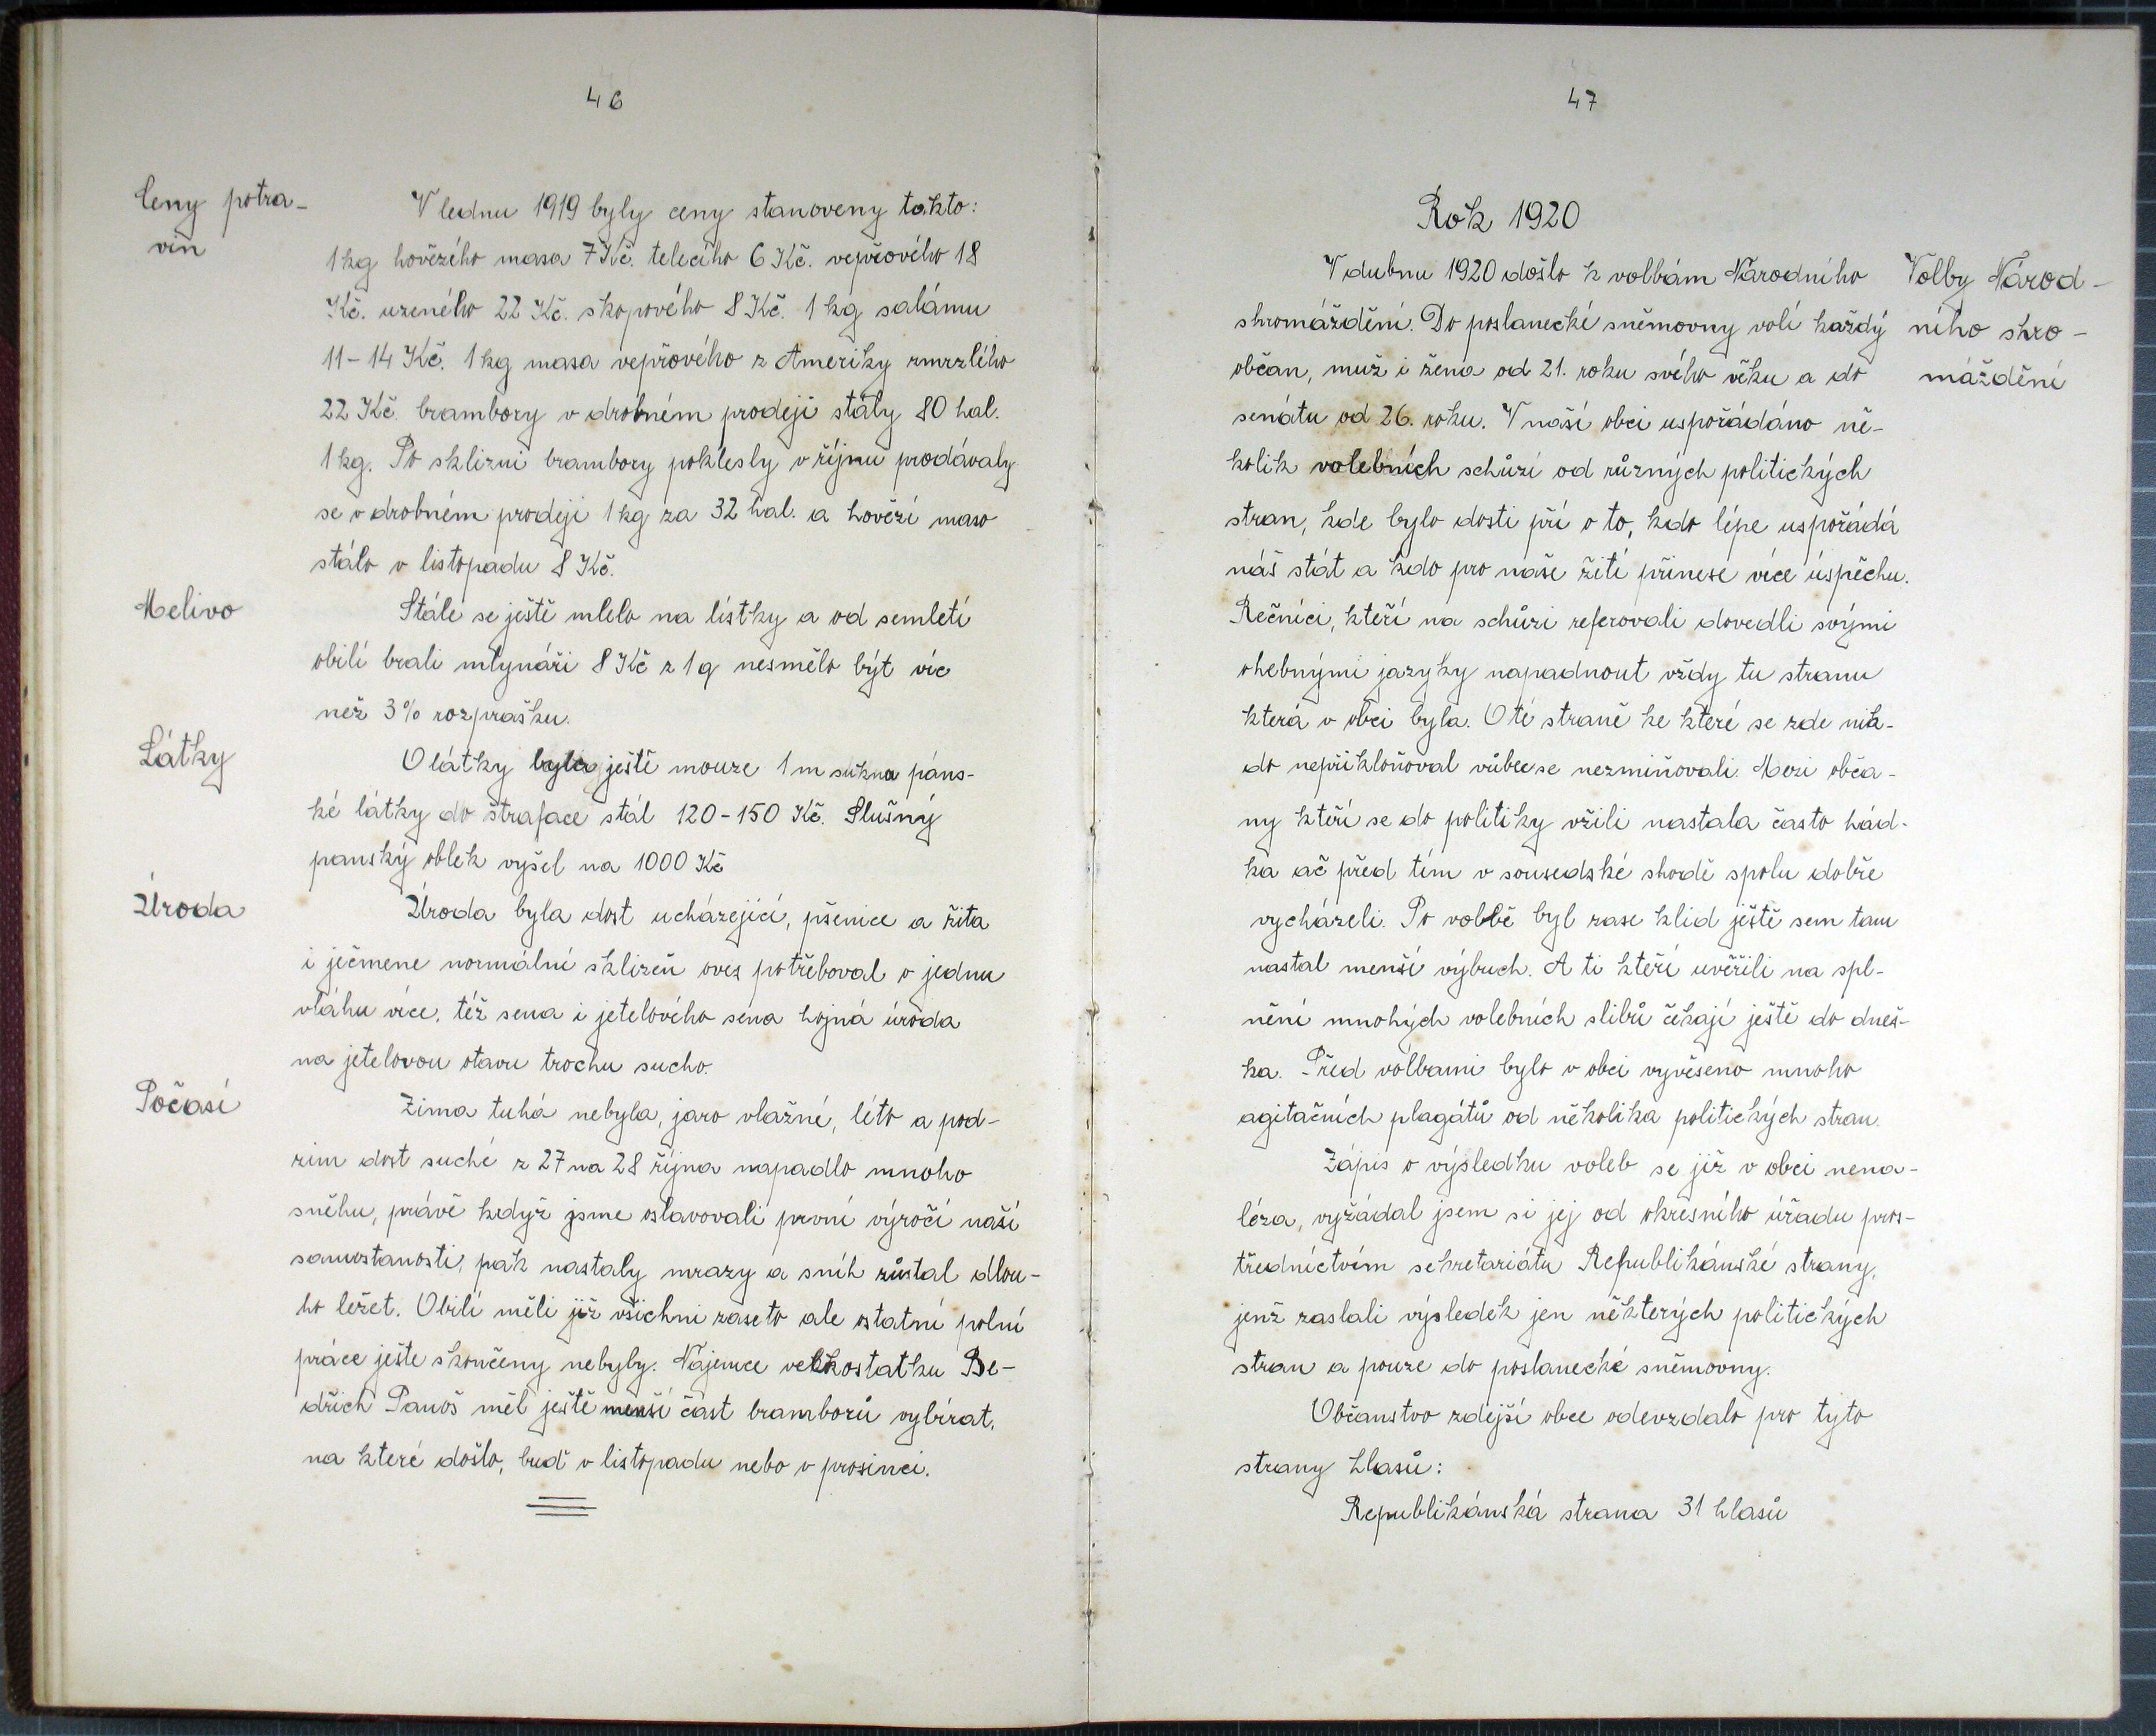 46
Ceny potra-
vin
V lednu 1919 byly ceny stanoveny takto:
1 kg hovězího masa 7 Kč. telecího 6 Kč. vepřového 18
Kč. uzeného 22 Kč. skopového 8 Kč. 1 kg salámu
11-14 Kč. 1 kg masa vepřového z Ameriky zmrzlého
22 Kč. brambory v drobném prodeji stály 80 hal.
1 kg. Po sklizni brambory poklesly v říjnu prodávaly
se v drobném prodeji 1 kg za 32 hal. a hovězí maso
stálo v listopadu 8 Kč.
Melivo
Stále se ještě mlelo na lístky a od semletí
obilí brali mlynáři 8 Kč z 1 q nesmělo být víc
než 3% rozprašku.
Látky
O látky byla ještě nouze 1 m sukna páns-
ké látky do štraface stál 120-150 Kč. Slušný
panský oblek vyšel na 1000 Kč
Úroda
Úroda byla dost ucházející, pšenice a žita
i ječmene normální sklizeň oves potřeboval o jednu
vláhu více, též sena i jetelového sena hojná úroda
na jetelovou otavu trochu sucho.
Počasí
Zima tuhá nebyla, jaro vlažné, léto a pod-
zim dost suché z 27 na 28 října napadlo mnoho
sněhu, právě když jsme oslavovali první výročí naší
samostanosti, pak nastaly mrazy a sníh zůstal dlou-
ho ležet. Obilí měli již všichni zaseto ale ostatní polní
práce ješte skončeny nebyly. Nájemce velkostatku Be-
dřich Panoš měl ještě menší část bramborů vybírat,
na které došlo, buď v listopadu nebo v prosinci.
47
Rok 1920
Volby Národ-
ního shro-
máždění
V dubnu 1920 došlo k volbám Národního
shromáždění. Do poslanecké sněmovny volí každý
občan, muž i žena od 21. roku svého věku a do
senátu od 26. roku. V naší obci uspořádáno ně-
kolik volebních schůzí od různých politických
stran, kde bylo dosti pří o to, kdo lépe uspořádá
náš stát a kdo pro naše žití přinese více úspěchu.
Rečníci, kteří na schůzi referovali dovedli svými
ohebnými jazyky napadnout vždy tu stranu
která v obci byla. O té straně ke které se zde nik-
do nepřikloňoval vůbec se nezmiňovali. Mezi obča-
ny kteří se do politiky vžili nastala často hád-
ka ač před tím v sousedské shodě spolu dobře
vycházeli. Po volbě byl zase klid ještě sem tam
nastal menší výbuch. A ti kteří uvěřili na spl-
nění mnohých volebních slibů čekají ještě do dneš-
ka. Před volbami bylo v obci vyvěseno mnoho
agitačních plagátů od několika politických stran.
Zápis o výsledku voleb se již v obci nena-
léza, vyžádal jsem si jej od okresního úřadu pros-
třednictvím sekretariátu Republikánské strany,
jenž zaslali výsledek jen některých politických
stran a pouze do poslanecké sněmovny.
Občanstvo zdejší obce odevzdalo pro tyto
strany hlasů:
Republikánská strana 31 hlasů